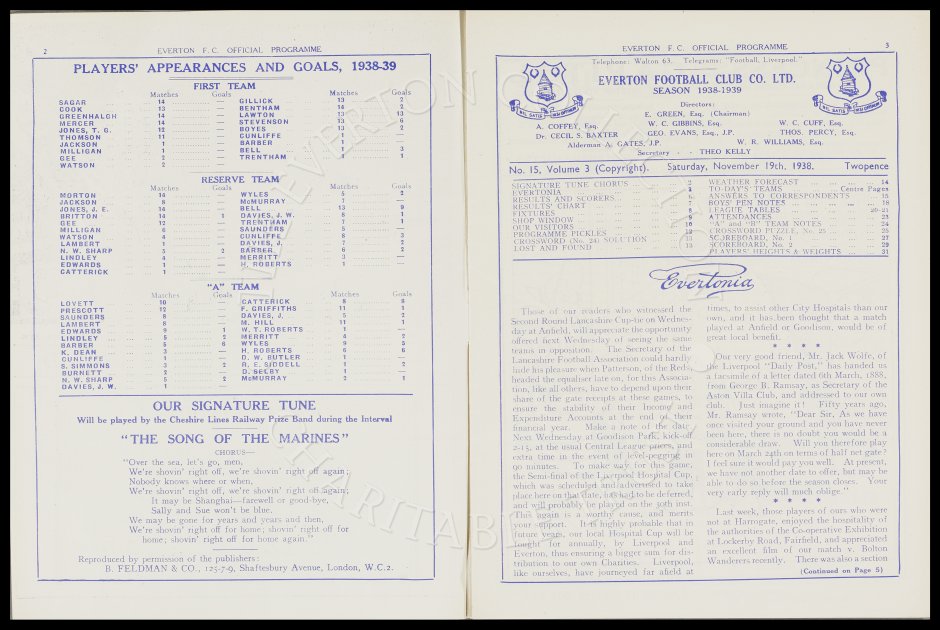 2
EVERTON F.C. OFFICIAL PROGRAMME
PLAYERS' APPEARANCES AND GOALS, 1938-39
FIRST TEAM
Matches Goals Matches Goals
SAGAR 14 — GILLICK 13 2
COOK 13 — BENTHAM 14 2
GREENHALGH 14 — LAWTON 13 13
MERCER 13 — STEVENSON 13 6
JONES, T. G. 12 — BOYES 13 2
THOMSON 11 — CUNLIFFE 1 —
JACKSON 1 — BARBER 1 —
MILLIGAN 1 — BELL 1 3
GEE 2 — TRENTHAM 1 1
WATSON 2 —
RESERVE TEAM
Matches Goals Matches Goals
MORTON 14 — WYLES 5 2
JACKSON 8 — McMURRAY 7 —
JONES, J. E. 14 — BELL 9
BRITTON 14 1 DAVIES, J. W. 8 1
GEE 12 — TRENTHAM 7 1
MILLIGAN 6 — SAUNDERS 5 —
WATSON 4 — CUNLIFFE 8 3
LAMBERT 1 — DAVIES, J. 7 2
N. W. SHARP 5 2 BARBER 6 2
LINDLEY 4 — MERRITT 3 —
EDWARDS 1 — H. ROBERTS 1 —
CATTERICK 1
"A" TEAM
Matches Goals Matches Goals
LOVETT 10 — CATTERICK 8 8
PRESCOTT 12 — F. GRIFFITHS 11 1
SAUNDERS 8 — DAVIES, J. 5 2
LAMBERT 8 — M. HILL 11 1
EDWARDS 9 1 W. T. ROBERTS 1 —
LINDLEY 5 2 MERRITT 4 2
BARBER 5 6 WYLES 9 5
K. DEAN 3 — H. ROBERTS 6 6
CUNLIFFE 1 — D. W. BUTLER 1 —
S. SIMMONS 3 2 R. E. SIDDELL 1 2
BURNETT 2 — D. SELBY 1 —
N. W. SHARP 5 2 McMURRAY 2 1
DAVIES, J. W. 1 —
OUR SIGNATURE TUNE
Will be played by the Cheshire Lines Railway Prize Band during the Interval
"THE SONG OF THE MARINES"
CHORUS—
"Over the sea, let's go, men,
We're shovin' right off, we're shovin' right off again;
Nobody knows where or when,
We're shovin' right off, we're shovin' right off again;
It may be Shanghai—farewell or good-bye,
Sally and Sue won't be blue.
We may be gone for years and years and then,
We're shovin' right off for home; shovin' right off for
home; shovin' right off for home again."
Reproduced by permission of the publishers:
B. FELDMAN & CO., 125-7-9, Shaftesbury Avenue, London, W.C.2.
EVERTON F.C. OFFICIAL PROGRAMME
3
Telephone: Walton 63. Telegrams: "Football, Liverpool."
EVERTON FOOTBALL CLUB CO. LTD.
SEASON 1938-1939
NIL SATIS NISI OPTIMUM
NIL SATIS NISI OPTIMUM
Directors:
E. GREEN, Esq. (Chairman)
A. COFFEY, Esq. W. C. GIBBINS, Esq. W. C. CUFF, Esq.
Dr. CECIL S. BAXTER GEO. EVANS, Esq., J.P. THOS. PERCY, Esq.
Alderman A. GATES, J.P. W. R. WILLIAMS, Esq.
Secretary - THEO KELLY
No. 15, Volume 3 (Copyright). Saturday, November 19th, 1938. Twopence
SIGNATURE TUNE CHORUS 2
EVERTONIA 3
RESULTS AND SCORERS 6
RESULTS' CHART 7
FIXTURES 8
SHOP WINDOW
OUR VISITORS 10
PROGRAMME PICKLES 12
CROSSWORD (No. 24) SOLUTION 13
LOST AND FOUND 13
WEATHER FORECAST 14
TO-DAY'S TEAMS Centre Pages
ANSWERS TO CORRESPONDENTS 15
BOYS' PEN NOTES 18
LEAGUE TABLES 20-21
ATTENDANCES 23
"A" and "B" TEAM NOTES 24
CROSSWORD PUZZLE, No. 25 25
SCOREBOARD, No. 1 27
SCOREBOARD, No. 2 29
PLAYERS' HEIGHTS & WEIGHTS 31
Evertonia
Those of our readers who witnessed the
Second Round Lancashire Cup-tie on Wednes-
day at Anfield, will appreciate the opportunity
offered next Wednesday of seeing the same
teams in opposition. The Secretary of the
Lancashire Football Association could hardly
hide his pleasure when Patterson, of the Reds,
headed the equaliser late on, for this Associa-
tion, like all others, have to depend upon their
share of the gate receipts at these games, to
ensure the stability of their Income and
Expenditure Accounts at the end of their
financial year. Make a note of the date,
Next Wednesday at Goodison Park, kick-off
2-15, at the usual Central League prices, and
extra time in the event of level-pegging in
90 minutes. To make way for this game,
the Semi-final of the Liverpool Hospital Cup,
which was scheduled and advertised to take
place here on that date, has had to be deferred,
and will probably be played on the 30th inst.
This again is a worthy cause, and merits
your support. It is highly probable that in
future years, our local Hospital Cup will be
fought for annually, by Liverpool and
Everton, thus ensuring a bigger sum for dis-
tribution to our own Charities. Liverpool,
like ourselves, have journeyed far afield at
times, to assist other City Hospitals than our
own, and it has been thought that a match
played at Anfield or Goodison, would be of
great local benefit.
* * * *
Our very good friend, Mr. Jack Wolfe, of
the Liverpool "Daily Post," has handed us
a facsimile of a letter dated 6th March, 1888,
from George B. Ramsay, as Secretary of the
Aston Villa Club, and addressed to our own
club. Just imagine it! Fifty years ago,
Mr. Ramsay wrote, "Dear Sir, As we have
once visited your ground and you have never
been here, there is no doubt you would be a
considerable draw. Will you therefore play
here on March 24th on terms of half net gate?
I feel sure it would pay you well. At present,
we have not another date to offer, but may be
able to do so before the season closes. Your
very early reply will much oblige."
* * * *
Last week, those players of ours who were
not at Harrogate, enjoyed the hospitality of
the authorities of the Co-operative Exhibition
at Lockerby Road, Fairfield, and appreciated
an excellent film of our match v. Bolton
Wanderers recently. There was also a section
(Continued on Page 5)